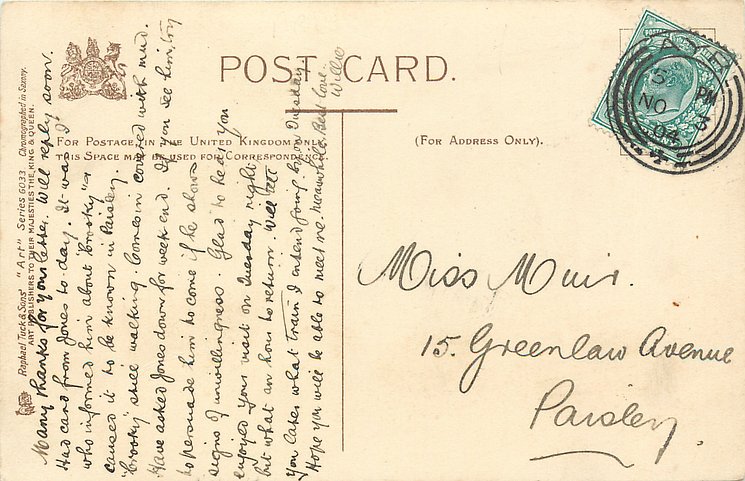 POST CARD.
For Postage in the United Kingdom only
this Space may be used for Correspondence
(For Address Only).
AYR
5 PM
NO 3
04
Raphael Tuck & Sons' "Art" Series 6033 Chromographed in Saxony.
ART PUBLISHERS TO THEIR MAJESTIES THE KING & QUEEN.
Many thanks for your letter. Will reply soon.
Had card from Jones to day. It was I
who informed him about "Crosky" &
caused it to be known in Paisley.
still walking. Comes in covered with mud.
Have asked Jones down for week end. If you see him, try
to persuade him to come if he shows
signs of unwillingness. Glad to hear you
enjoyed your visit on Tuesday night
but what an hour to return. Will tell
you later what train I intend going by on Tuesday.
Hope you will be able to meet me. Meanwhile Best love.
Willie
Miss Muir.
15. Greenlaw Avenue
Paisley.